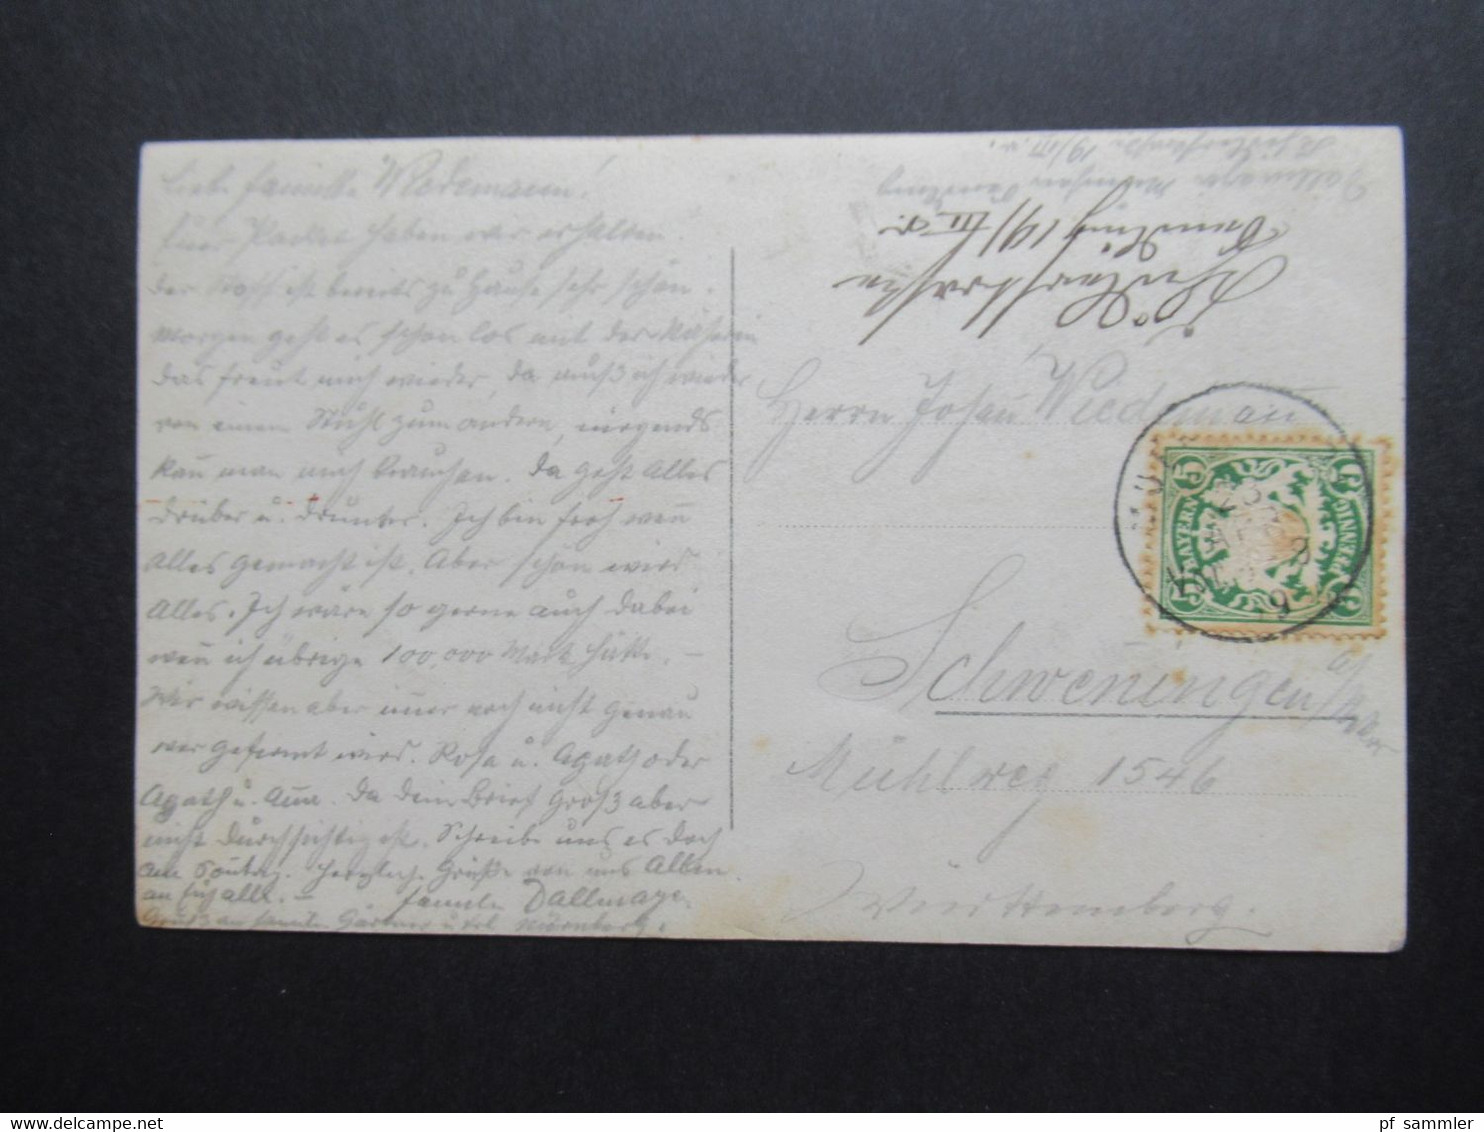 Liebe Familie Wiedemann!
Euer Packet haben wir erhalten.
der Stoff ist bereits zu Hause sehr schön.
Morgen geht es schon los mit der Näherin
das freut mich wieder, da muß ich wieder
von einem Stuhl zum andern, nirgends
kan̄ man mich brauchen. Da geht Alles
drüber u. drunter. Ich bin froh wen̄
Alles gemacht ist. Aber schön wird
Alles. Ich wäre so gerne auch dabei
wen̄ ich übrige 100,000 Mark hätte. –
Wir wissen aber im̄er noch nicht genau
wer gefirmt wird. Rosa u. Agath oder
Agath u. Da dein Brief groß aber
nicht durchsichtig ist. Schreibe uns es doch
am Son̄tag. Herzliche Grüße von uns Allen
an Euch alle. – Familie Dallmayr.
Gruß an Familie Gärtner u. Nürnberg.
Dallmayr München Sendling
19/III
Sendling 19/III
Herrn Johan̄ Wiedeman̄
Schweningen a/Neckar
Mühlweg 1546
Württemberg.
BAYERN
5
5
5
5
PFENNIG
MÜNCHEN
pf sammler